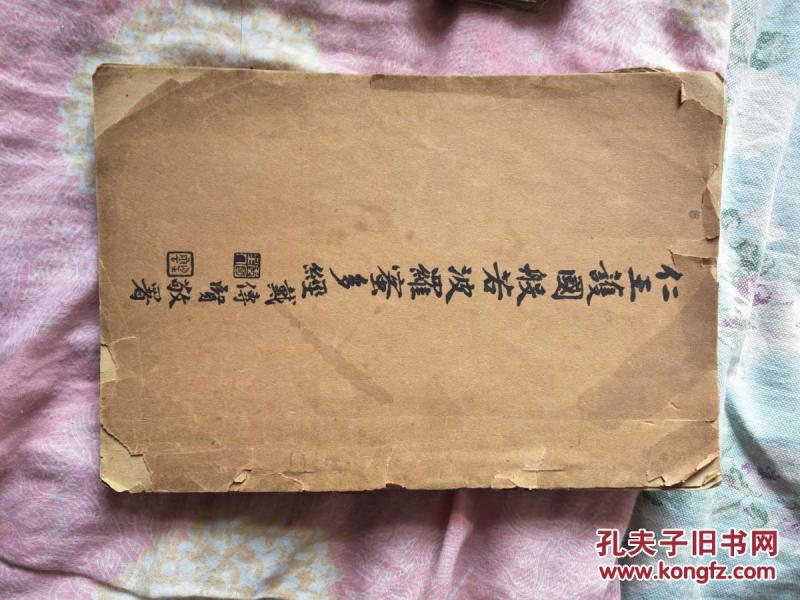 仁王護國般若波羅蜜多經
戴傳賢敬署
孔夫子旧书网
www.kongfz.com